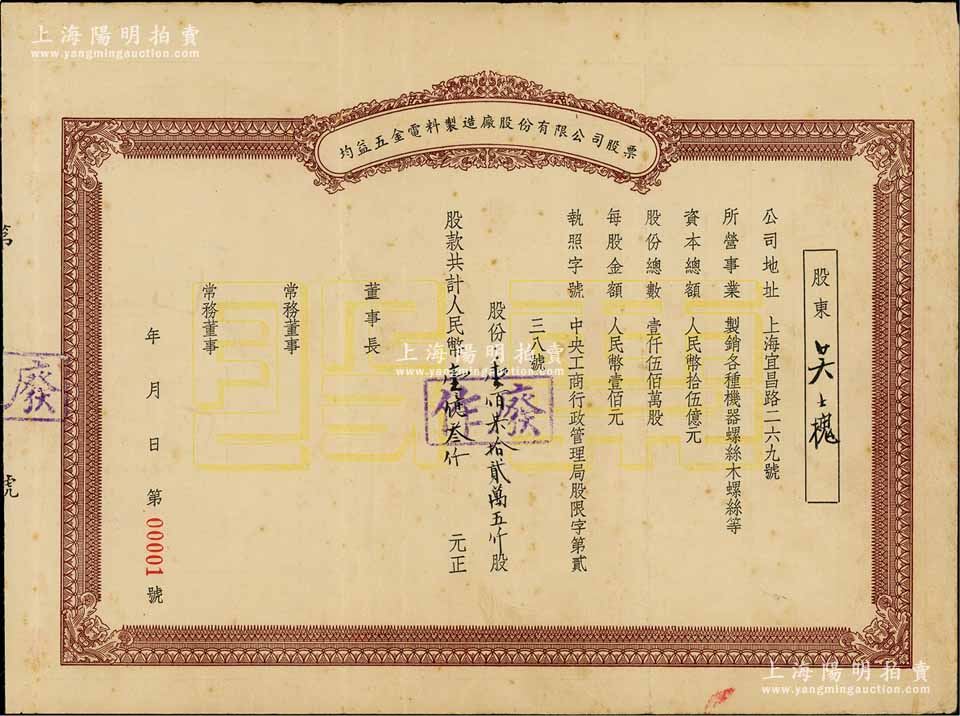 上海陽明拍賣
www.yangmingauction.com
均益五金電料製造廠股份有限公司股票
股東 吳士槐
公司地址 上海宜昌路二六九號
所營事業 製銷各種機器螺絲木螺絲等
資本總額 人民幣拾伍億元
股份總數 壹仟伍佰萬股
每股金額 人民幣壹佰元
執照字號 中央工商行政管理局股限字第貳
三八號
股份壹佰柒拾貳萬五仟股
股款共計人民幣壹億叁仟 元正
董事長
常務董事
常務董事
年 月 日 第 00001 號
作廢
上海陽明拍賣
www.yangmingauction.com
第 號
廢
上海陽明拍賣
www.yangmingauction.com